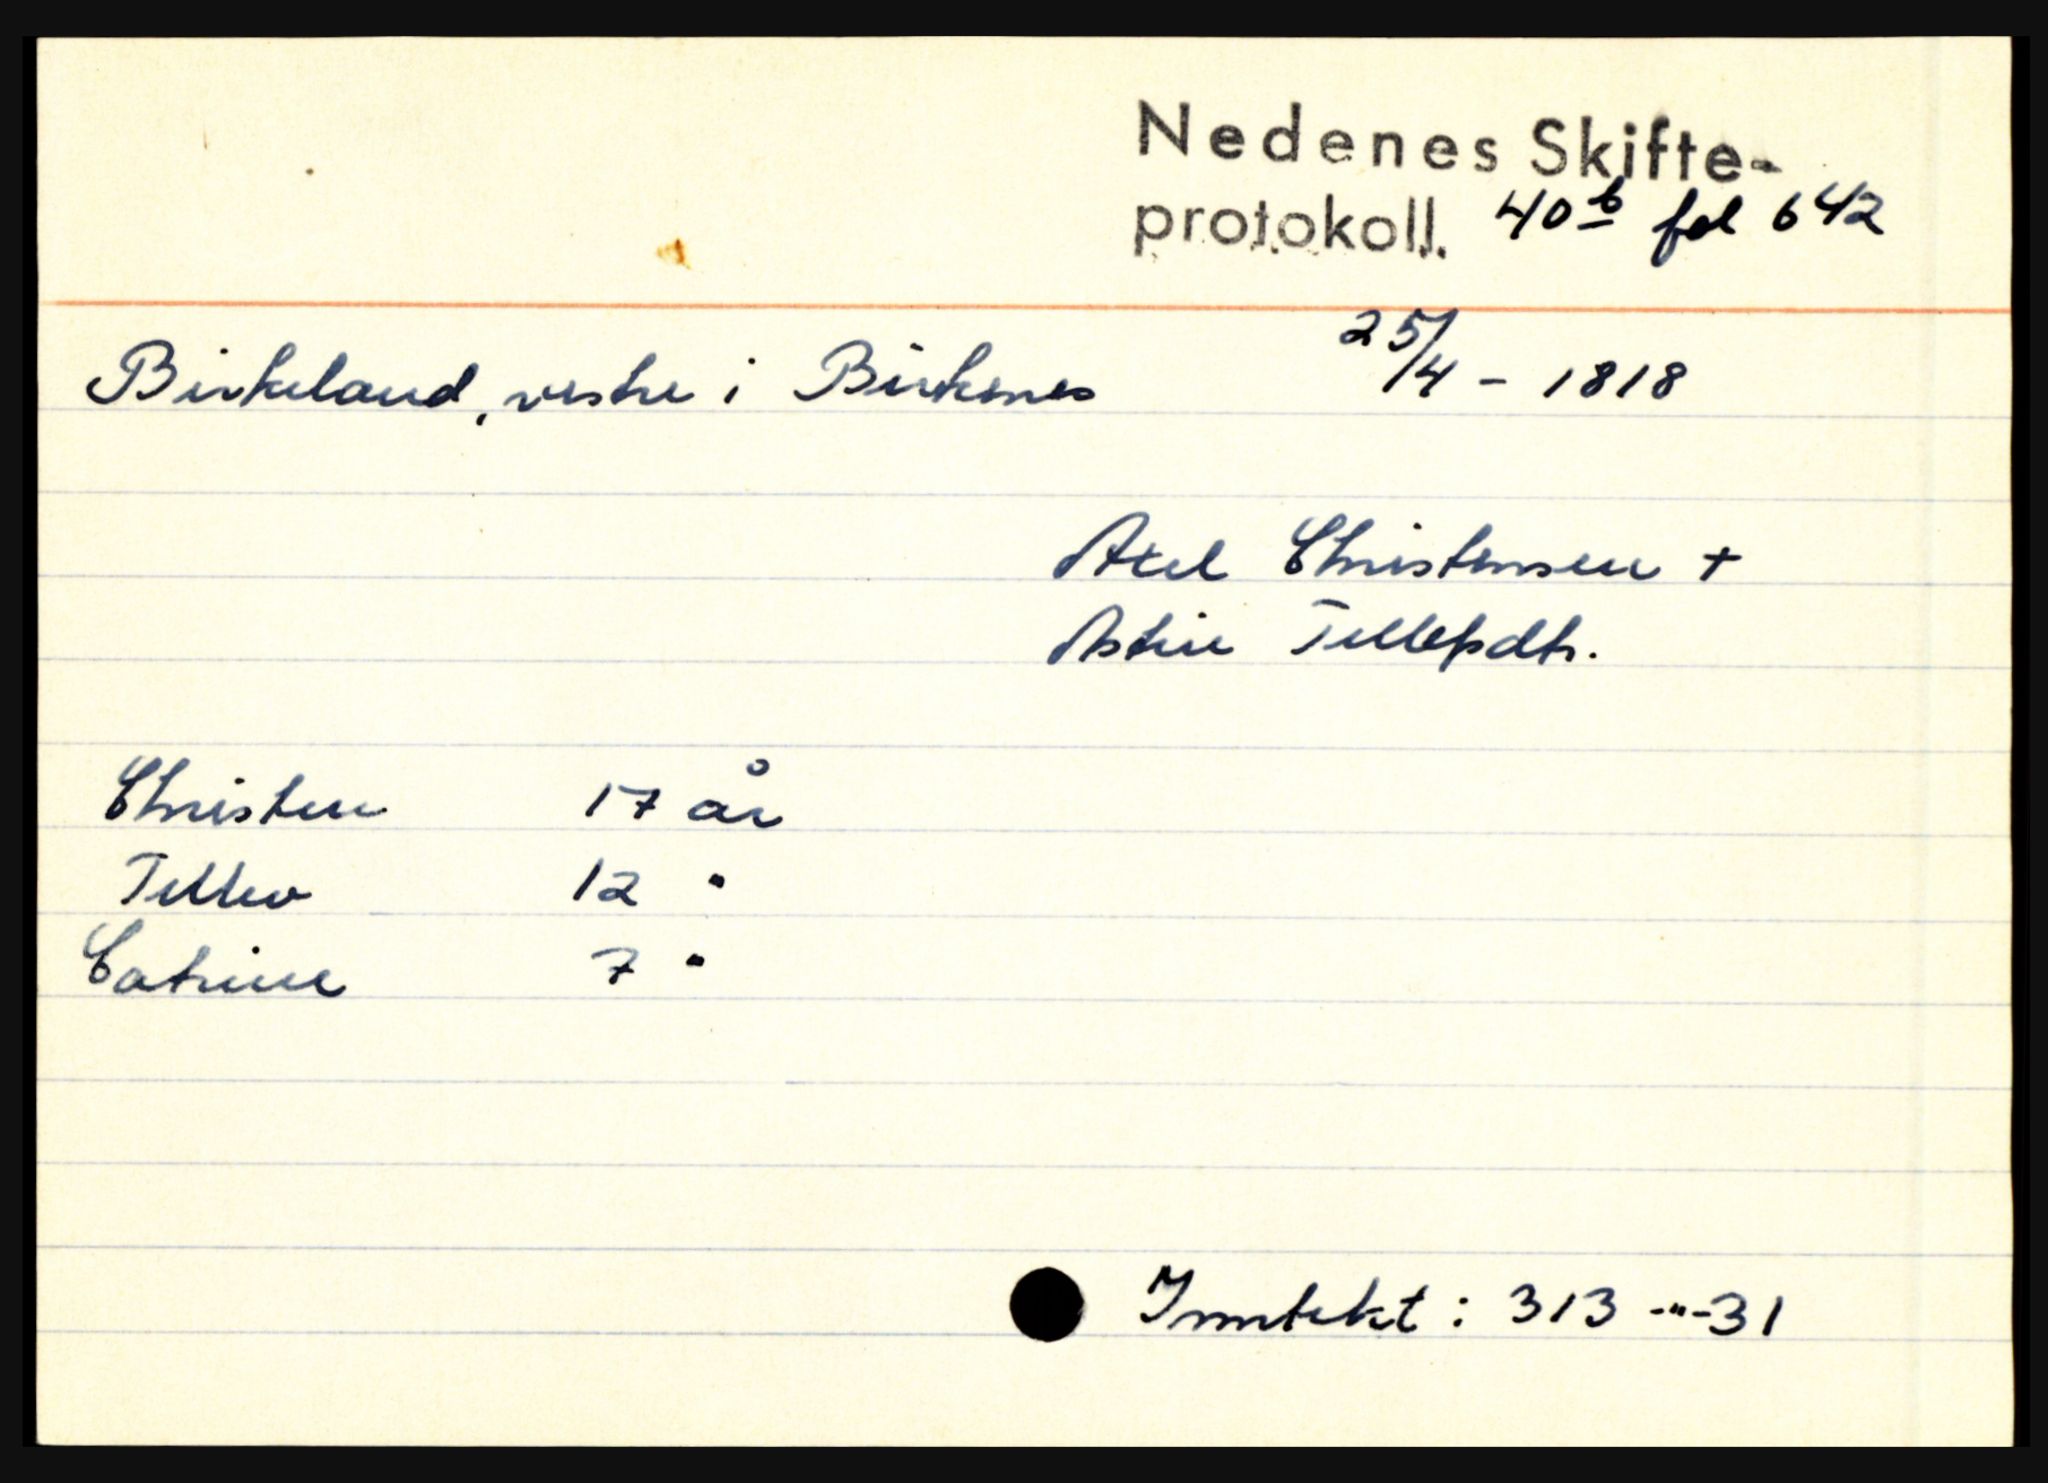 Nedenes Skifte-
protokoll. 40b fol 642
Birkeland, vestre i Birkenes 25/4 - 1818
Axel Christensen +
Astrie Tellefsdtr.
Christen 17 år
Tellev 12 "
Catrine 7 "
Inntekt : 313 -"- 31